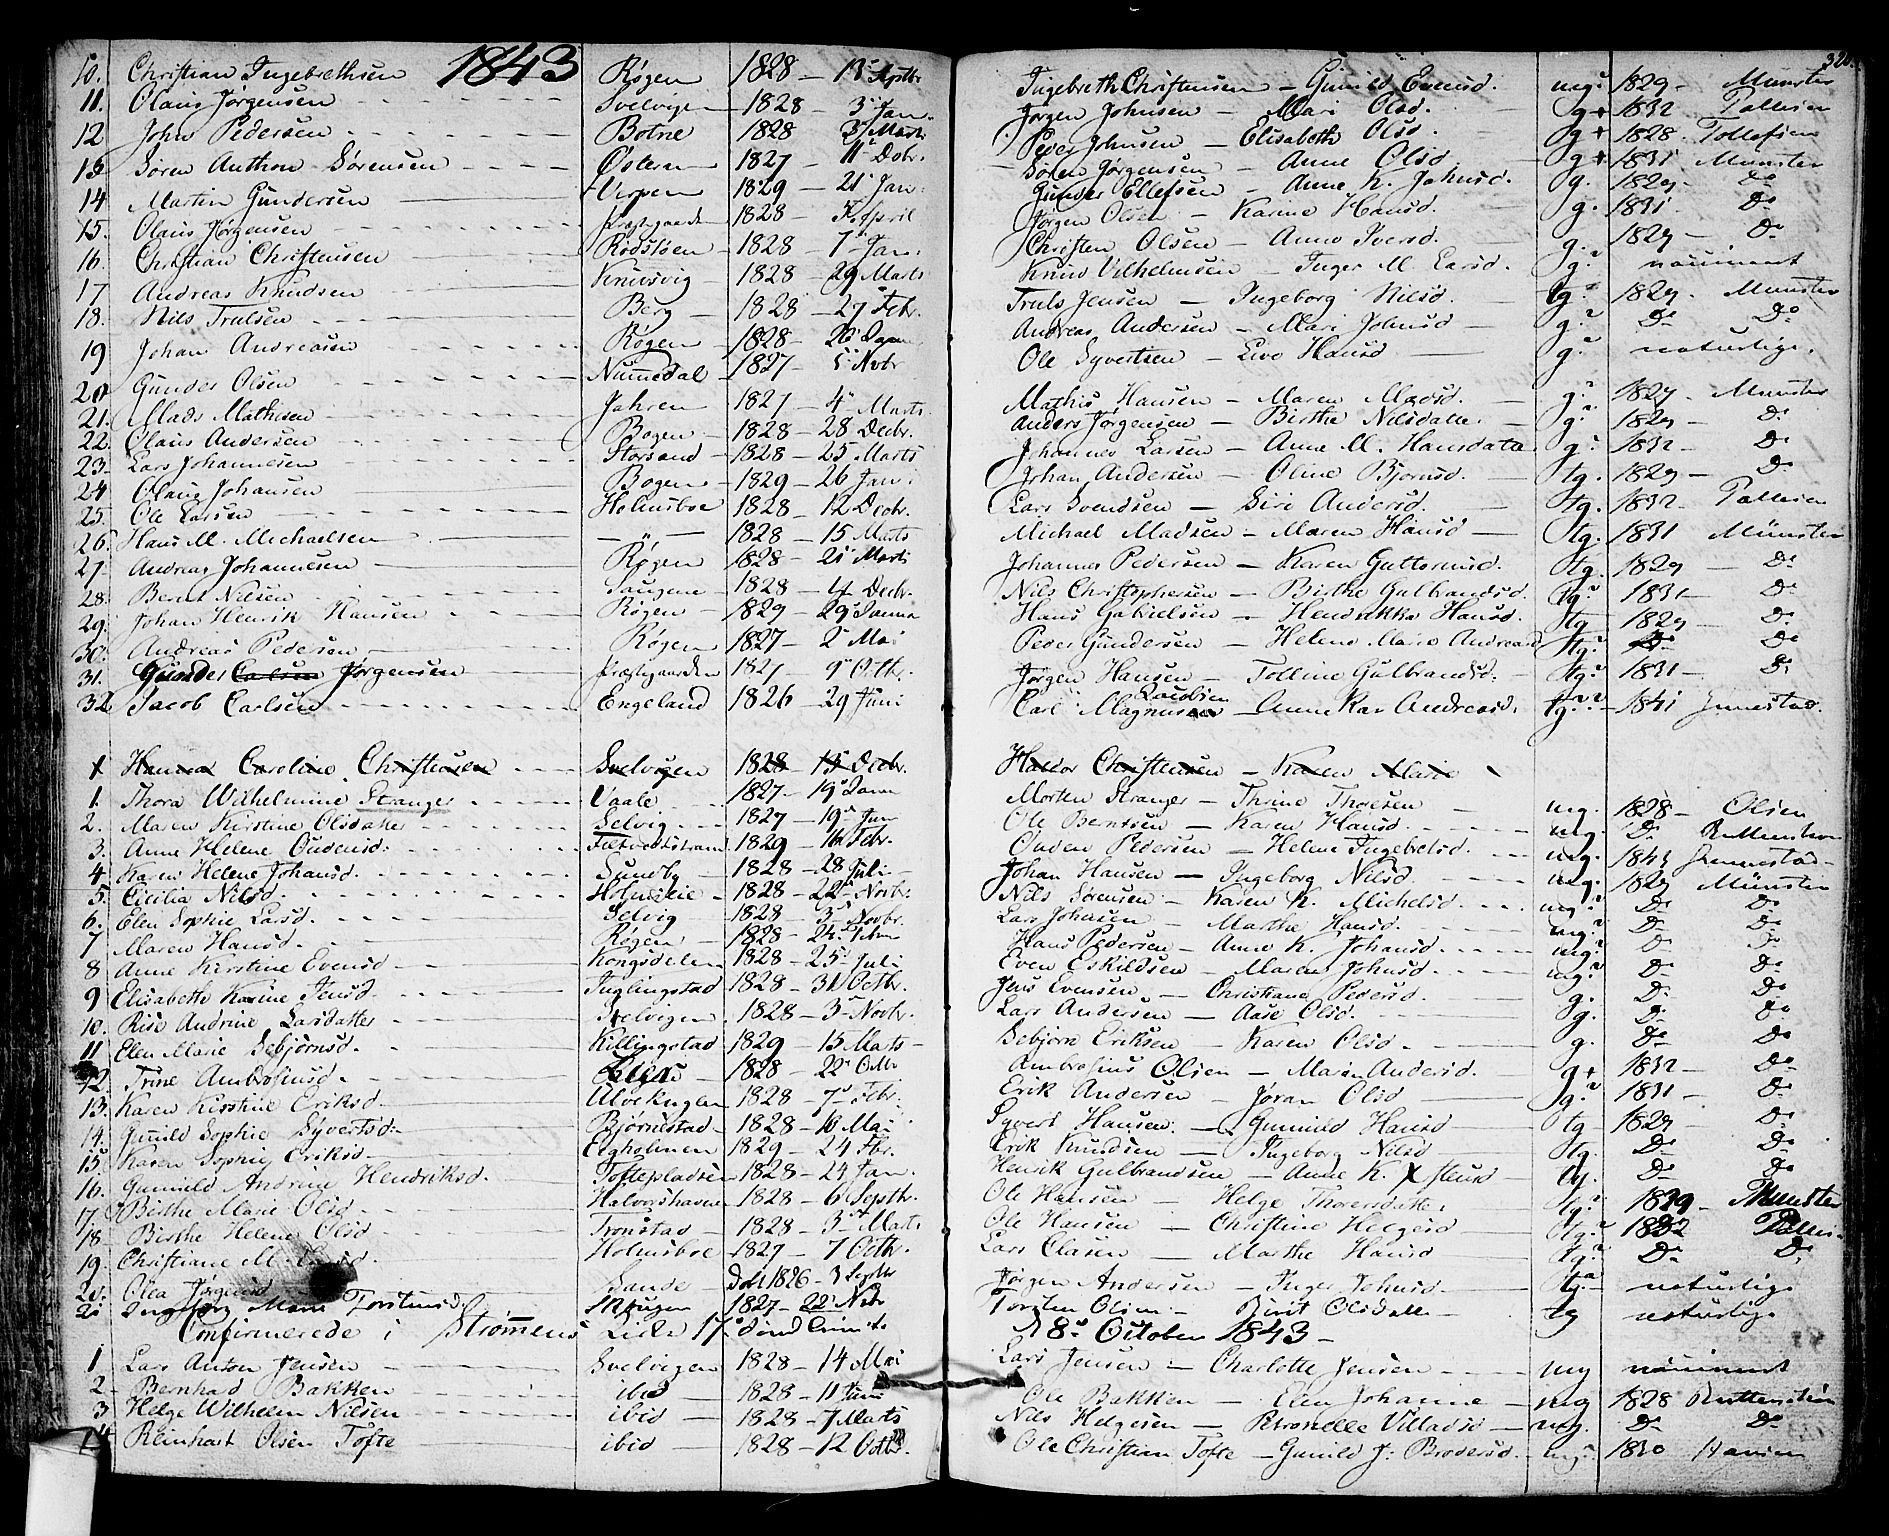 1843
32
10. Christian Ingebrethsen Røgen 1828 - 13 Septbr. Ingebreth Christensen - Gunild Evensd. mg. 1829 - Munster
11. Olaus Jørgensen Svelvigen 1828 - 3 Jan. Jørgen Johnsen - Mari Olsd. g+ 1832 Tollefsen
12 John Pedersen Botne 1828 3 Marts Peder Johnsen - Elisabeth Olsd. g+ 1828. Tollefsen
13 Søren Anthon Sørensen 1827 - 11 Søren Jørgensen - Anne Olsd g+ 1831 Munster
14 Martin Gundersen Verpen 1829 - 21 Jan. Gunder Ellefsen - Anne K. Johnsd. g. 1829 - Do
15. Olaus Jørgensen Præstegaarden 1828 - April Jørgen Olsen - Karine Hansd. g. 1831 Do
16. Christian Christensen Rødstøen 1828 - 7 Jan. Christen Olsen - Anne Iversd. g. 1829 - Do
17 Andreas Knudsen Knivsvig 1828 - 29 Marts Knud Vilhelmsen - Inger M. Larsd. g.
18. Nils Trulsen Berg 1828 - 27 Febr. Truls Jensen - Ingeborg Nilsd. tg. 1829. Munster
19 Johan Andreasen Røgen 1828 - 26 Andreas Andersen - Mari Johnsd g. Do Do
20 Gunder Olsen Numedal 1827 - 5 Novbr Ole Syvertsen - Live Hansd g. naturlige.
21. Mads Mathisen Jahren 1827 - 4 Marts. Mathis Hansen - Maren Madsd. g. 1827. Munster
22. Olaus Andersen Bogen 1828 - 28 Decbr. Anders Jørgensen - Birthe Nilsdatter g. 1829 - Do
23. Lars Johannesen Storsand 1828 - 25 Marts Johannes Larsen - Anne M. Hansdatter g. 1832 - Do
24 Olaus Johansen Bogen 1829 - 26 Jan. Johan Andersen - Oline Bjørnsd. tg. 1829 - Do
25. Ole Larsen Holmsboe 1828 - 12 Decbr. Lars Svendsen - Siri Andersd. tg. 1832 -
26. Hans M. Michaelsen - " - 1828 - 15 Marts Michael Madsen - Maren Hansd tg. 1831 Münster
27. Andreas Johannesen Røgen 1828 - 21 Marts Johannes Pedersen - Karen Guttormsd. tg. 1829 - Do
28. Bernt Nilsen 1828 - 4 Decbr. Nils Christophersen - Birthe Gulbrandsd. 1831 - Do
29. Johan Henrik Hansen Røgen 1829 - 29 Hans Gabrielsen - Hendrikka Hansd. tg 1829 - Do
30. Andreas Pedersen Røgen 1827 - 2 Mai Peder Gundersen - Helene Marie Andreasd tg. Do Do
31. Gunder Carlsen Jørgensen Præstegaarden 1827 9 Octbr. Jørgen Hansen - Tolline Gulbrandsd. tg. 1831 - Do
32 Jacob Carlsen Engeland 1826 - 29 Juni Carl Magnusen Jacobsen - Anne Kar. Andreasd. tg. 1841 Jennestad.
1 Hanna Caroline Christensen Svelvigen 1828 - 13 Decbr. Haldor Christensen - Karen Marie
1. Thora Wilhelmine Stranger Vaale 1827 - 19 Morten Stranger - Thrine Thoresen mg. 1828 - Olsen
2. Maren Kirstine Olsdatter Selvig 1827 - 19 Juni Ole Berntsen - Karen Hansd. mg. Do
3. Anne Helene Oudensd. 1829 - 16 Febr. Ouden Pedersen - Helene Ingebretsd. mg. 1843 Jennestad
4. Karen Helene Johansd. Sundby 1828 - 28 Juli Johan Hansen - Ingeborg Nilsd. mg. 1829 Münster
5. Cicilia Nilsd. 1828 - 22 Novbr. Nils Sørensen - Karen K. Michelsd. mg. Do Do
6. Elen Sophie Larsd. Selvig 1828 - 3 Novbr. Lars Johnsen - Marthe Hansd. mg. Do Do
7 Maren Hansd. Røgen 1828 - 24. Hans Pedersen - Anne K. Johansd. mg. Do Do
8 Anne Kirstine Evensd Kongsdelen 1828 - 25 Juli Even Eskildsen - Maren Johnsd. mg. Do Do
9 Elisabeth Karine Jensd. Juglingstad 1828 - 31 Octbr. Jens Evensen - Christiane Pedersd. g. Do Do
10. Rise Andrine Larsdatter Svelvigen 1828 - 3 Novbr. Lars Andersen - Aase Olsd. g. Do Do
11 Elen Marie Sebjørnsd. Killingstad 1829 - 15 Mats - Sebjørn Eriksen - Karen Olsd. g. Do Do
12. Trine Ambrosiusd. 1828 - 22 Octbr Ambrosius Olsen - Maren Andersd. g+ 1832 - Do
13. Karen Kirstine Eriksd. 1828 - 7 Febr. Erik Andersen - Jøran Olsd g. 1831 - Do
14. Gunild Sophie Syvertsd. Bjørnstad 1828 - 16 Mai Syvert Hansen. - Gunnild Hansd tg 1829 - Do
15 Karen Sophie Eriksd Elgholmen 1829 - 24 Fbr. Erik Knudsen - Ingeborg Nilsd tg. Do Do
16. Gunnild Andrine Hendriksd. Toftepladsen 1828 - 24 Jan. Henrik Gulbrandsen - Anne K. tg. Do Do
17 Birthe Marie Olsd Halvorshavn 1828 - 6 Septbr. Ole Hansen - Helge Thoresdatter tg. 1829 - Munster
18 Birthe Helene Olsd Tronstad 1828 - 3 Marts Ole Hansen - Christine Helgesd tg. 1832
19. Christiane M. Larsd. Holmsboe 1827 - 7 Octbr. Lars Clasen - Marthe Hansd tg. Do Do
20. Olea Jørgensd Sande Døbt 1826 - 3 Septbr Jørgen Andersen - Inger Johnsd. tg. naturlige
21 Ingeborg Marie Torstensd. 1827 - 22 Novbr Torsten Olsen - Birit Olsdatter tg naturlige
Confirmerede i Strømens Kirke 17 Sønd. e. Trinit. d. 8 October 1843 -
1 Lars Anton Jensen Svelvigen 1828 - 14 Mai Lars Jensen - Charlotte Jensen mg
2 Bernhard Bakken ibid 1828 - 11 Juni Ole Bakken - Elen Johanne mg 1828
3 Helge Wilhelm Nilsen ibid 1828 - 7 Marts Nils Helgesen - Petronelle Villadsd - mg. Do Do
4 Reinhart Olsen Tofte ibid 1828 - 12 Octbr Ole Christian Tofte - Gunild J. Brodersd. mg. 1830 Hansen